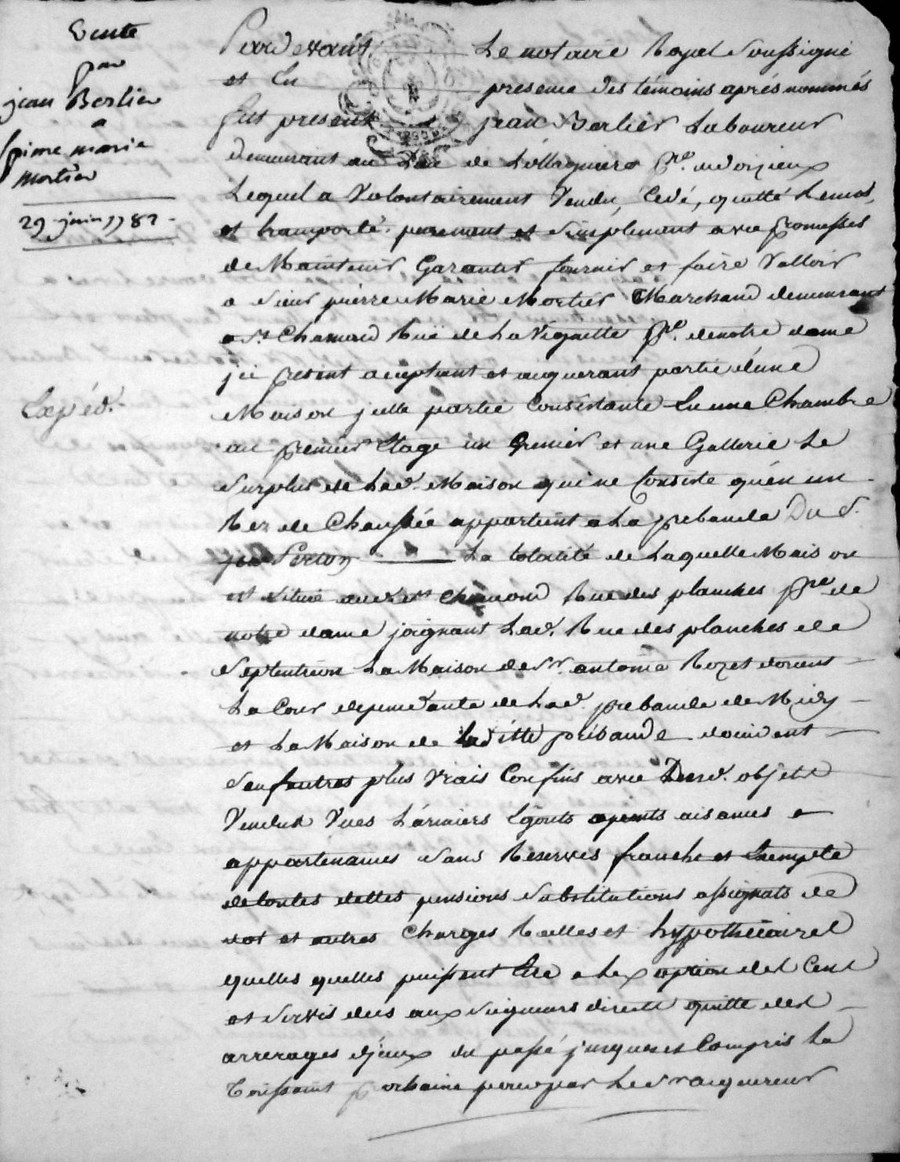 Vente
par
jean Berlier
a
pierre marie
mortier
29 juin 1782
Expéd.
Pardevant Le notaire Royal Soussigné
et En presence des témoins aprés nommés
fut present jean Berlier Laboureur
demeurant au Lieu de
Lequel a Volontairement Vendu, Cedé, quitté Remis,
et transporté purement et Simplement avec promesses
de Maintenir Garantir fournir et faire Valloir
a Sieur pierre Marie Mortier Marchand demeurant
a St Chamond Rüe de La Vignette psse. de notre dame
jci present acceptant et acquerant partie d'une
Maison jcelle partie Consistante En une Chambre
au premier Etage un Grenier et une Gallerie Le
Surplus de Lad. Maison qui ne Consiste qu'en un
Rez de Chaussée appartient a La prebande Du S.
La totalité de Laquelle Maison
est située aud. St Chamond Rue des planches psse de
notre dame joignant Lad. Rue des planches de
Septentrion La Maison de Sr. antoine Rozet dorient
La Cour dependante de Lad. prebande de Midy
et La Maison de Laditte prébande doccident
Sauf autres plus Vrais Confins avec Dud. objet
Vendus Vues Larmiers Egouts aisances &
appartenances Sans Reserves franche et Exempte
de toutes dettes pensions Substitutions assignats de
dot et autres Charges Réelles et hypothécaires
quelles quelles puissent Etre a Lexception des Cens
et Servis dus aux Seigneurs directs quitte des
arrerages djceux du passé jusques et Compris La
Toussaint prochaine par Led acquereur